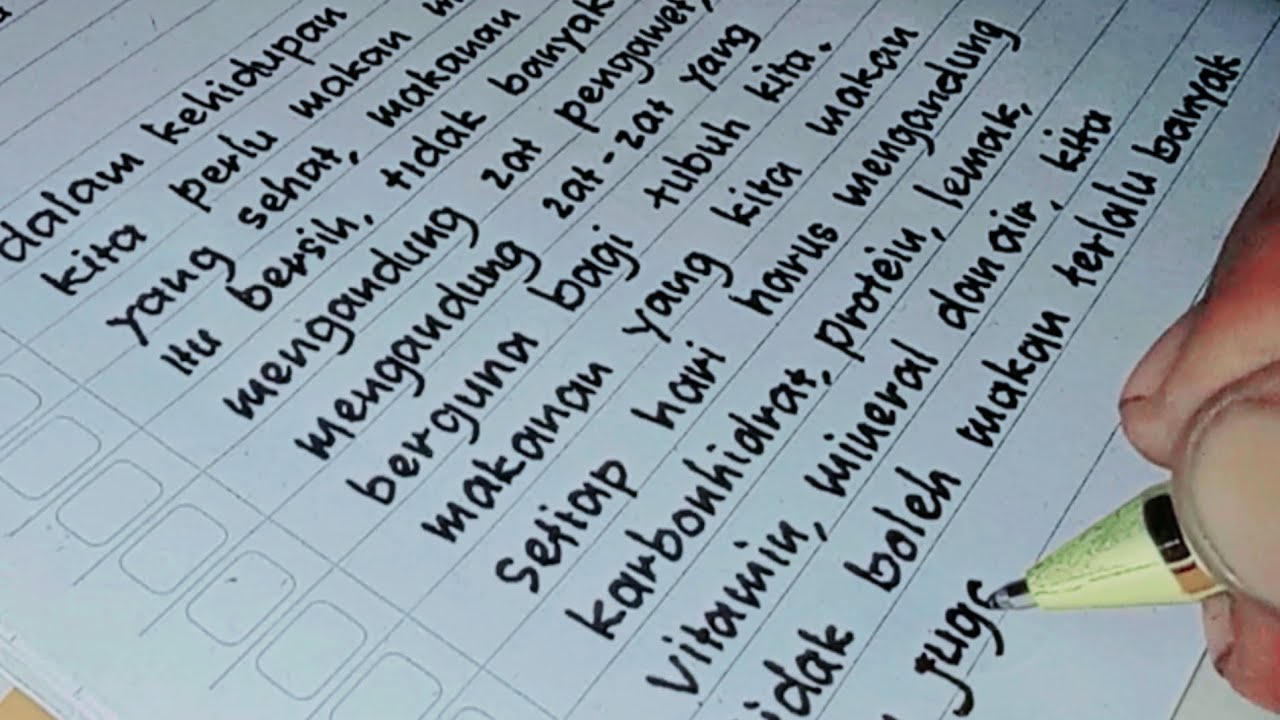 dalam kehidupan
kita perlu makan
yang sehat, makanan
itu bersih, tidak banyak
mengandung zat pengawet,
mengandung zat-zat yang
berguna bagi tubuh kita.
makanan yang kita makan
setiap hari harus mengandung
karbonhidrat, protein, lemak,
vitamin, mineral dan air, kita
idak boleh makan terlalu banyak
juga